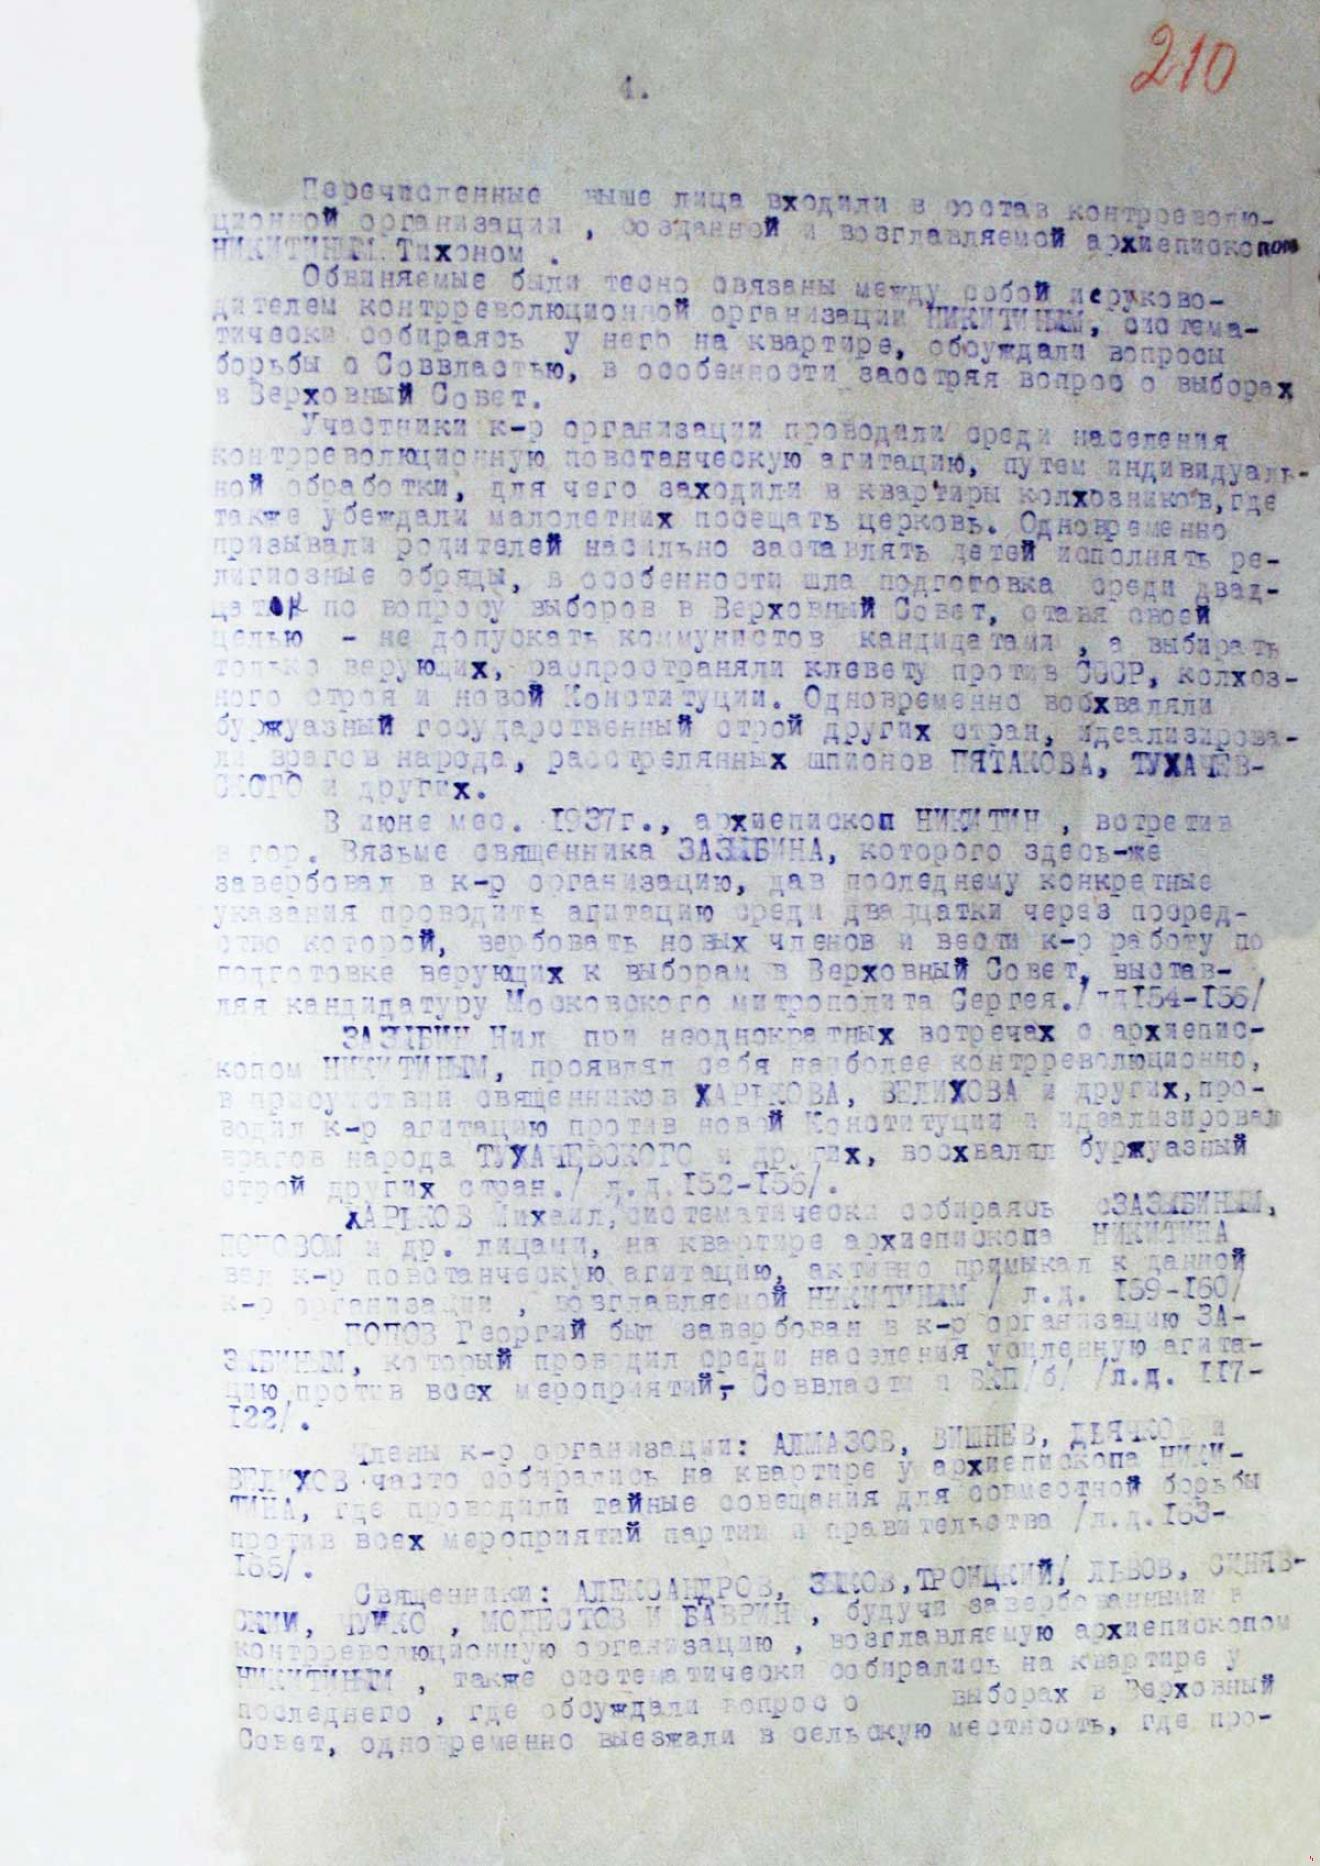 210
4.
Перечисленные выше лица входили в состав контроеволю-
ционной организации , созданной и возглавляемой архиепископом
НИКИТИНЫМ Тихоном .
Обвиняемые были тесно связаны между собой и с руково-
дителем контрреволюционной организации НИКИТИНЫМ, система-
тически собираясь у него на квартире, обсуждали вопросы
борьбы с Соввластью, в особенности заостряя вопрос о выборах
в Верховный Совет.
Участники к-р организации проводили среди населения
контрреволюционную повстанческую агитацию, путем индивидуаль-
ной обработки, для чего заходили в квартиры колхозников,где
также убеждали малолетних посещать церковь. Одновременно
призывали родителей насильно заставлять детей исполнять ре-
лигиозные обряды, в особенности шла подготовка среди двад-
цаток по вопросу выборов в Верховный Совет, ставя своей
целью - не допускать коммунистов кандидатами , а выбирать
только верующих, распространяли клевету против СССР, колхоз-
ного строя и новой Конституции. Одновременно восхваляли
буржуазный государственный строй других стран, идеализирова-
ли врагов народа, расстрелянных шпионов ПЯТАКОВА, ТУХАЧЕВ-
СКОГО и других.
В июне мес. 1937г., архиепископ НИКИТИН , встретив
в гор. Вязьме священника ЗАЗЫБИНА, которого здесь-же
завербовал в к-р организацию, дав последнему конкретные
указания проводить агитацию среди двадцатки через посред-
ство которой, вербовать новых членов и вести к-р работу по
подготовке верующих к выборам в Верховный Совет, выстав-
ляя кандидатуру Московского митрополита Сергея./лд154-156/
ЗАЗЫБИН Нил при неоднократных встречах с архиепис-
копом НИКИТИНЫМ, проявлял себя наиболее контрреволюционно,
в присутствии священников ХАРЬКОВА, ВЕЛИХОВА и других,про-
водил к-р агитацию против новой Конституции и идеализировал
врагов народа ТУХАЧЕВСКОГО и других, восхвалял буржуазный
строй других стран./ л.д.152-156/.
ХАРЬКОВ Михаил,систематически собираясь сЗАЗЫБИНЫМ,
ПОПОВОМ и др. лицами, на квартире архиепископа НИКИТИНА
вел к-р повстанческую агитацию, активно примыкал к данной
к-р организации , возглавляемой НИКИТИНЫМ / л.д. 159-160/
ПОПОВ Георгий был завербован в к-р организацию ЗА-
ЗЫБИНЫМ, который проводил среди населения усиленную агита-
цию против всех мероприятий, Соввласти и ВКП/б/ /л.д. 117-
122/.
Члены к-р организации: АЛМАЗОВ, ВИШНЕВ, ДЬЯЧКОВ и
ВЕЛИХОВ часто собирались на квартире у архиепископа НИКИ-
ТИНА, где проводили тайные совещания для совместной борьбы
против всех мероприятий партии и правительства /л.д.163-
165/.
Священники: АЛЕКСАНДРОВ, ЗЫКОВ,ТРОИЦКИЙ/ ЛЬВОВ, СИНЯВ-
СКИЙ, ЧУЙКО , МОДЕСТОВ И БАВРИН , будучи завербованными в
контрреволюционную организацию , возглавляемую архиепископом
НИКИТИНЫМ , также систематически собирались на квартире у
последнего , где обсуждали вопрос о выборах в Верховный
Совет, одновременно выезжали в сельскую местность, где про-